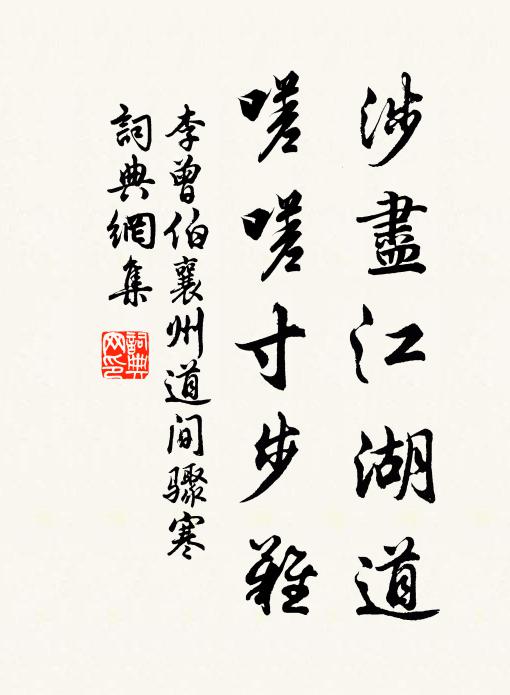 涉盡江湖道
嗟嗟寸步難
李曾伯襄州道间驟寒
詞典網集
詞典網印